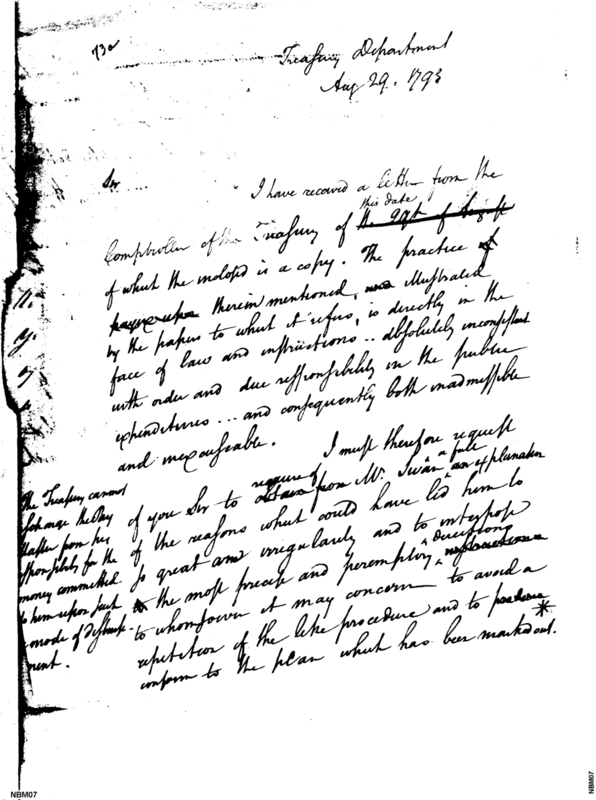 73a
Treasury Department
Aug 29. 1793
Sir
I have received a letter from the
this date
Comptroller of the Treasury of the 9th of August
of which the inclosed is a copy. The practice of
therein mentioned, and illustrated
by the papers to which it refers, is directly in the
face of law and instructions .. absolutely inconsistent
with order and due responsibility in the public
expenditures ... and consequently both inadmissible
and inexcuseable.
I must therefore request
require of a full
of you Sir to obtain from Mr. Swan an explanation
of the reasons which could have led him to
so great an irregularity and to interpose
decisions
the most precise and peremptory instructions
to whomsoever it may concern to avoid a
repetition of the like procedure and to
conform to the plan which has been marked out. *
The Treasury cannot
exchange the Pay
Master from his
responsibility for the
money committed
to him upon such
a mode of disburse-
ment.
NBM07
NBM07